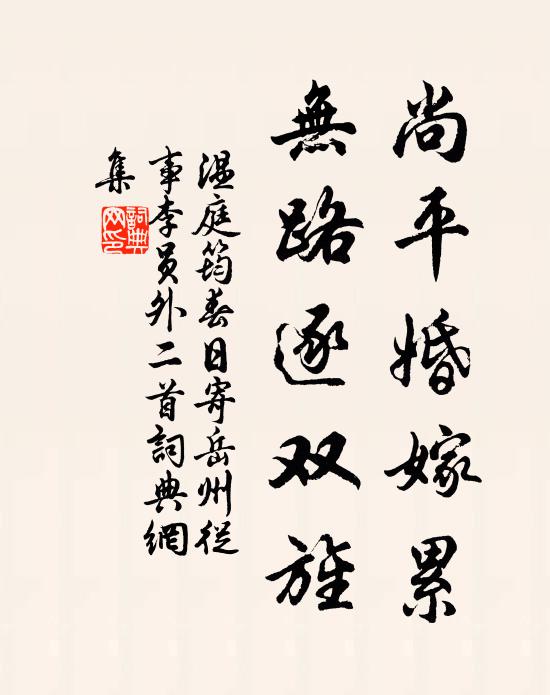 尚平婚嫁累
無路逐双旌
温庭筠春日寄岳州從
事李员外二首詞典網
集
詞典網印